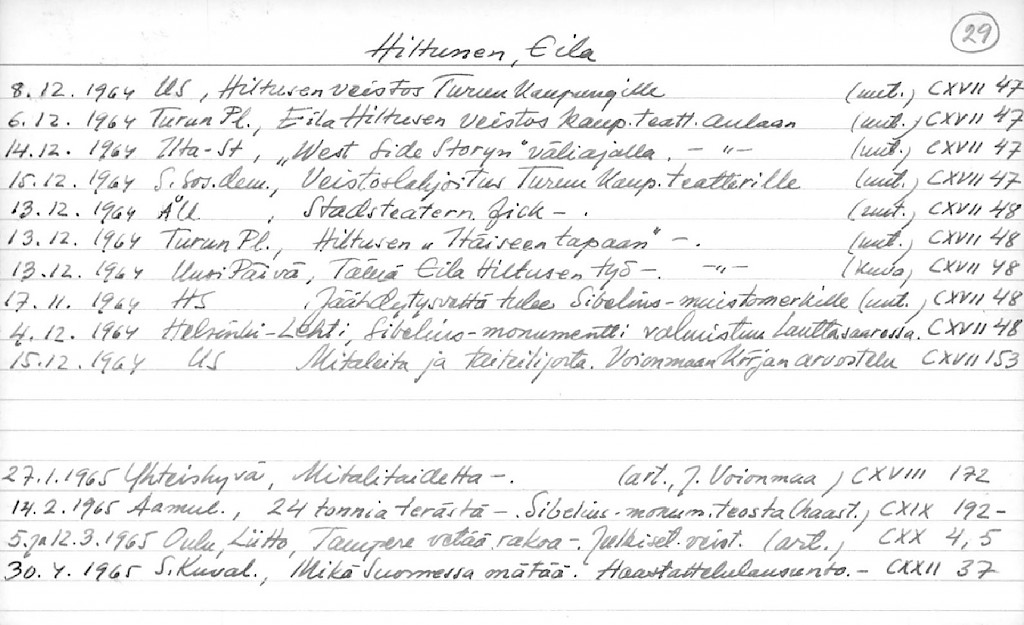 29
Hiltunen, Eila
8.12. 1964 US, Hiltusen veistos Turun Kaupungille (uut.) CXVII 47
6.12. 1964 Turun Pl., Eila Hiltusen veistos kaup.teatt. aulaan (uut.) CXVII 47
14.12. 1964 Ilta-St, „West Side Storyn" väliajalla. - " - (uut.) CXVII 47
15.12. 1964 S.Sos.dem., Veistoslahjoitus Turun Kaup.teatterille (uut.) CXVII 47
13.12. 1964 ÅU , Stadsteatern fick - . (uut.) CXVII 48
13.12. 1964 Turun Pl., Hiltusen „Häiseen tapaan" - . (uut.) CXVII 48
13.12. 1964 Uusi Päivä, Tämä Eila Hiltusen työ - . - " - (kuva) CXVII 48
17.11. 1964 HS , Jäähdytysvettä tulee Sibelius-muistomerkille (uut.) CXVII 48
4.12. 1964 Helsinki-Lehti, Sibelius-monumentti valmistuu Lauttasaaressa. CXVII 48
15.12. 1964 US Mitaleita ja taiteilijoita. Voionmaan kirjan arvostelu CXVII 153
27.1.1965 Yhteishyvä, Mitalitaidetta - . (art., J. Voionmaa) CXVIII 172
14.2.1965 Aamul., 24 tonnia terästä - . Sibelius-monum.teosta (haast.) CXIX 192-
5. ja 12.3.1965 Oulu, Liitto, Tampere vetää rakoa - . Julkiset veist. (art.) CXX 4, 5
30.4.1965 S.Kuval., Mikä Suomessa mätää. Haastattelulausunto. - CXXII 37